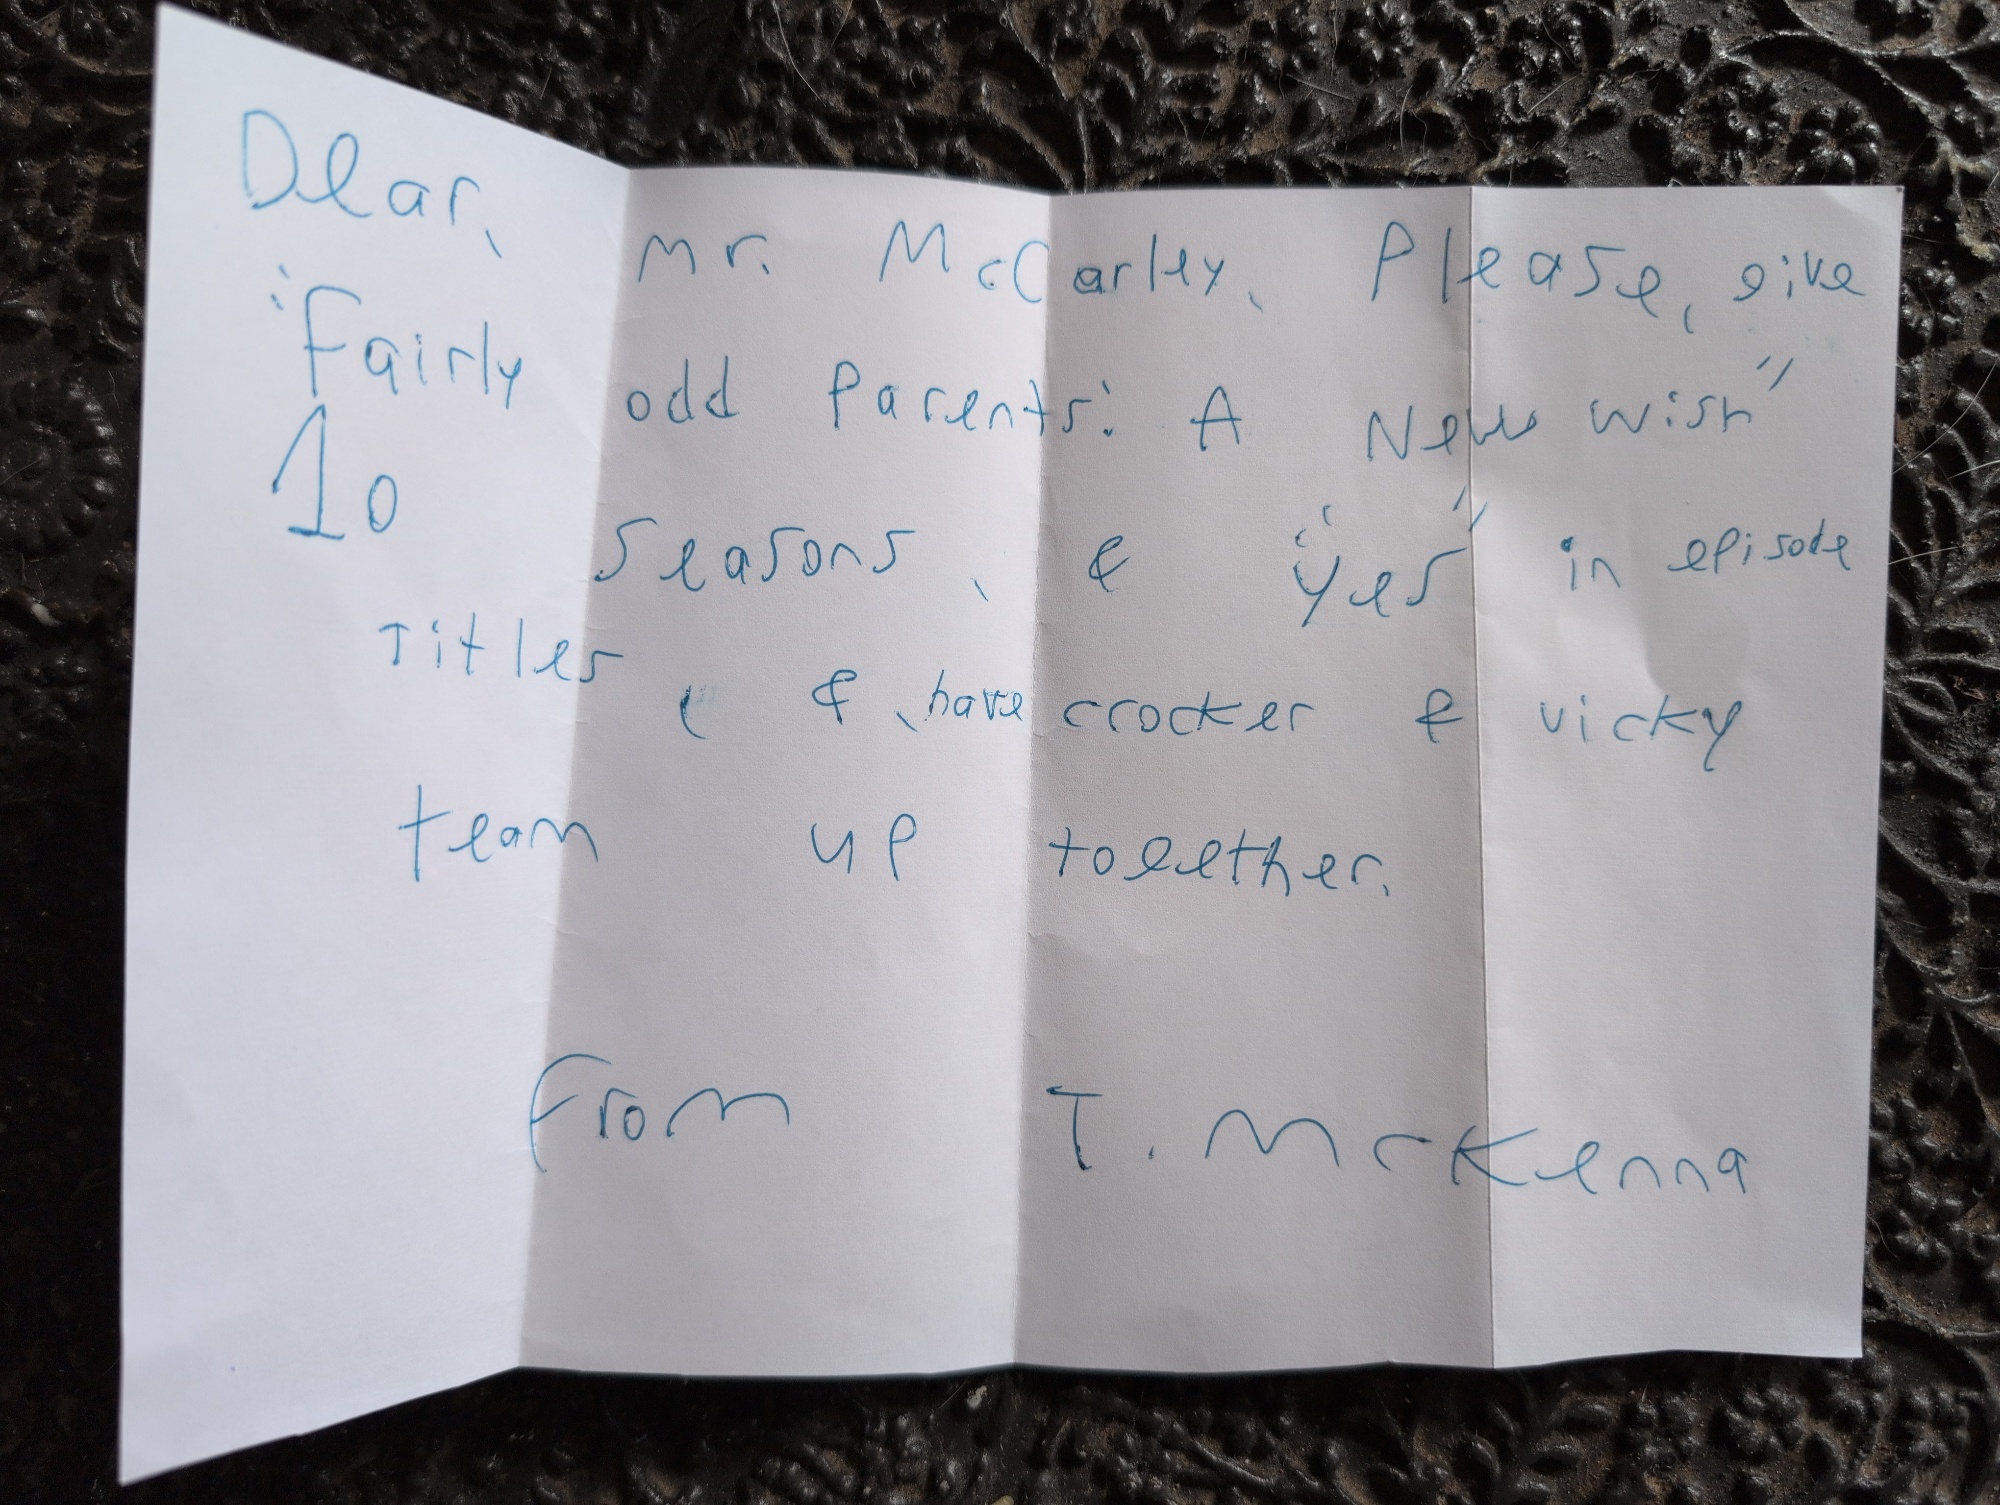 Dear, Mr. McCarley, Please, give
"Fairly odd Parents: A New Wish"
10 seasons, & "yes" in episode
Titles, & have crocker & vicky
team up together.
From T. McKenna